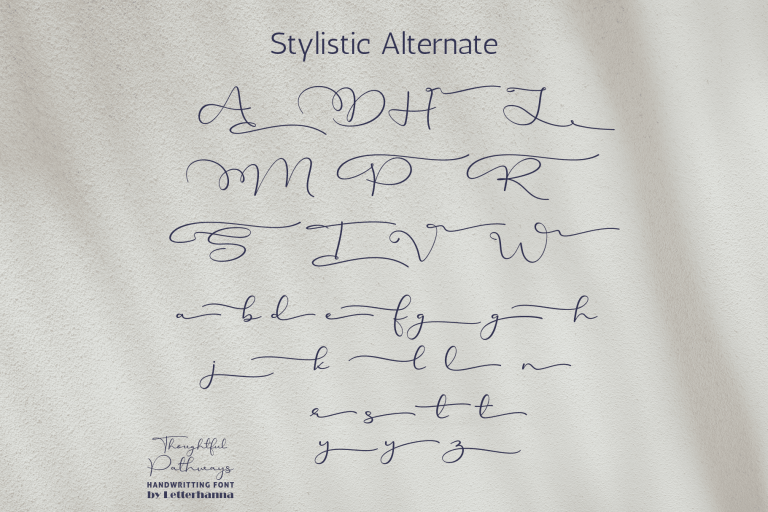 Stylistic Alternate
A D H L
M P R
S I V W
a b d e f g g h
j k l l n
r s t t
y y z
Thoughtful
Pathways
HANDWRITTING FONT
by Letterhanna